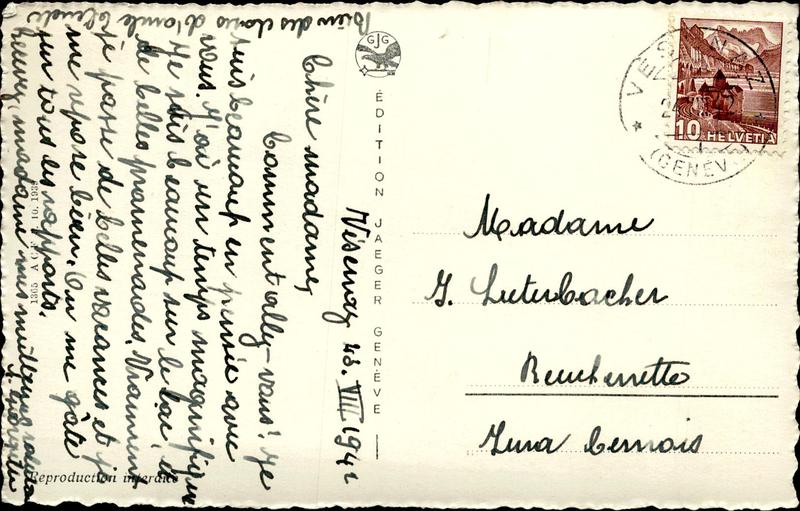 Vésenaz 23. VIII 1942
Chère madame,
Comment allez-vous? Je
suis beaucoup en pensée avec
vous. J'ai un temps magnifique
Je suis beaucoup sur le lac et
de belles promenades. Vraiment
je passe de belles vacances et je
me repose bien. On me gâte
sur tous les rapports.
Recevez, madame mes meilleures
Bien des
ÉDITION JAEGER GENÈVE
GJG
1365 A.C.F. 10.1936
Reproduction interdite
VÉSENAZ
(GENÈV
10 HELVETIA
Madame
J. Luterbacher
Reuchenette
Jura bernois